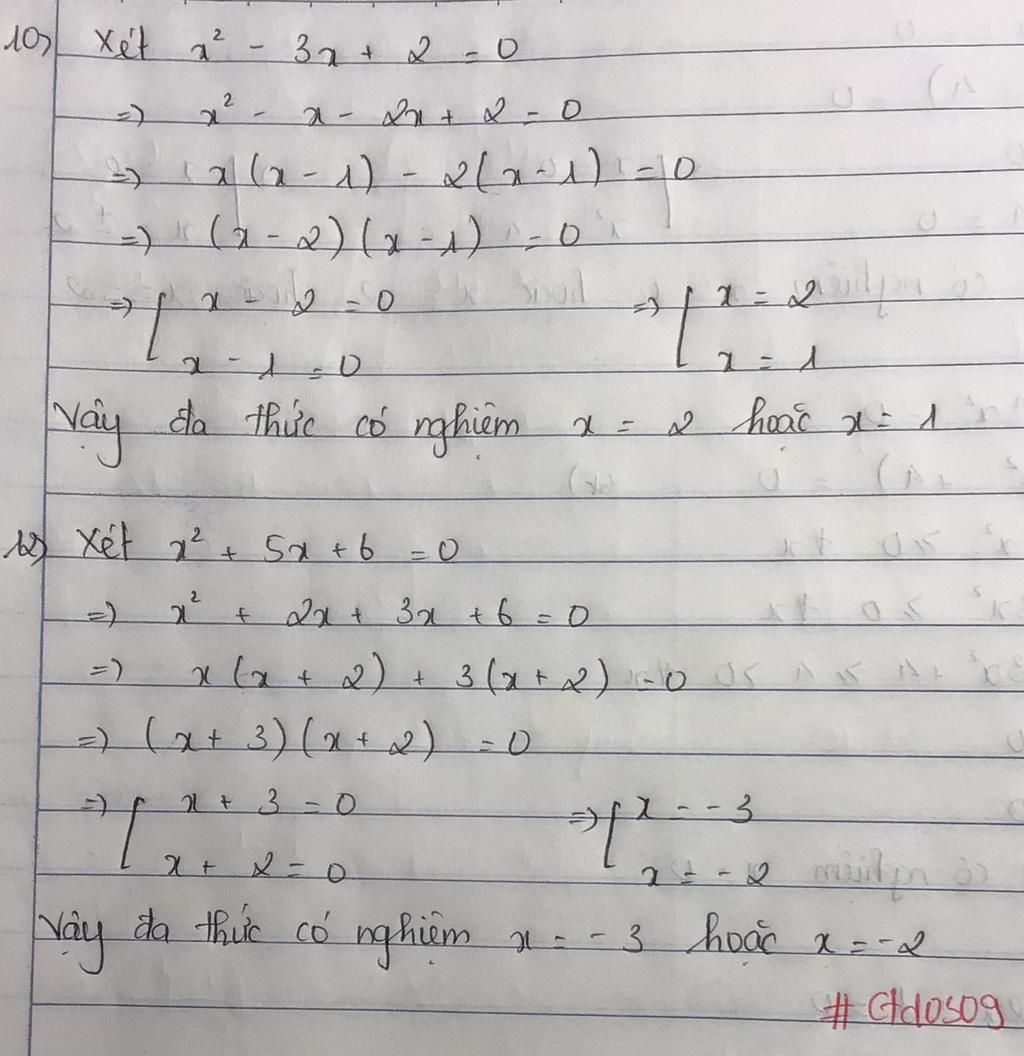 10) Xét x² - 3x + 2 = 0
=> x² - x - 2x + 2 = 0
=> x(x - 1) - 2(x - 1) = 0
=> (x - 2)(x - 1) = 0
=> [ x - 2 = 0 => [ x = 2
x - 1 = 0 x = 1
Vậy đa thức có nghiệm x = 2 hoặc x = 1
12) Xét x² + 5x + 6 = 0
=> x² + 2x + 3x + 6 = 0
=> x(x + 2) + 3(x + 2) = 0
=> (x + 3)(x + 2) = 0
=> [ x + 3 = 0 => [ x = -3
x + 2 = 0 x = -2
Vậy đa thức có nghiệm x = -3 hoặc x = -2